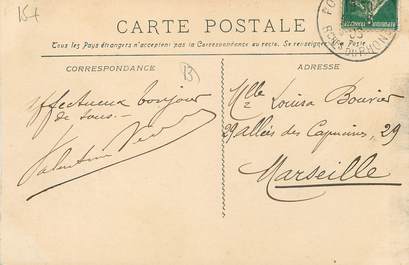 15+
CARTE POSTALE
Tous les Pays étrangers n'acceptent pas la Correspondance au recto. Se renseigner
CORRESPONDANCE
B
ADRESSE
Affectueux bonjour
de tous.
Valentine
Mlle Louisa Bouvier
29 allées des Capucines, 29
Marseille
RÉPUBLIQUE FRANÇAISE
DU RHÔNE